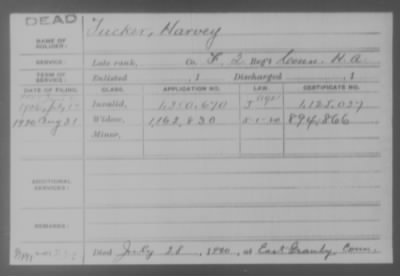 DEAD
NAME OF SOLDIER: Tucker, Harvey
SERVICE: Late rank, Co. F, 2 Reg't Conn. H. A.
TERM OF SERVICE: Enlisted , 1 Discharged , 1
DATE OF FILING. CLASS. APPLICATION NO. LAW. CERTIFICATE NO.
Invalid, 1,125,027
1920 Aug 21 Widow, 1,162,830 5-1-20 894,866
Minor,
ADDITIONAL SERVICES:
REMARKS:
Died July 28, 1920, at East Granby, Conn.